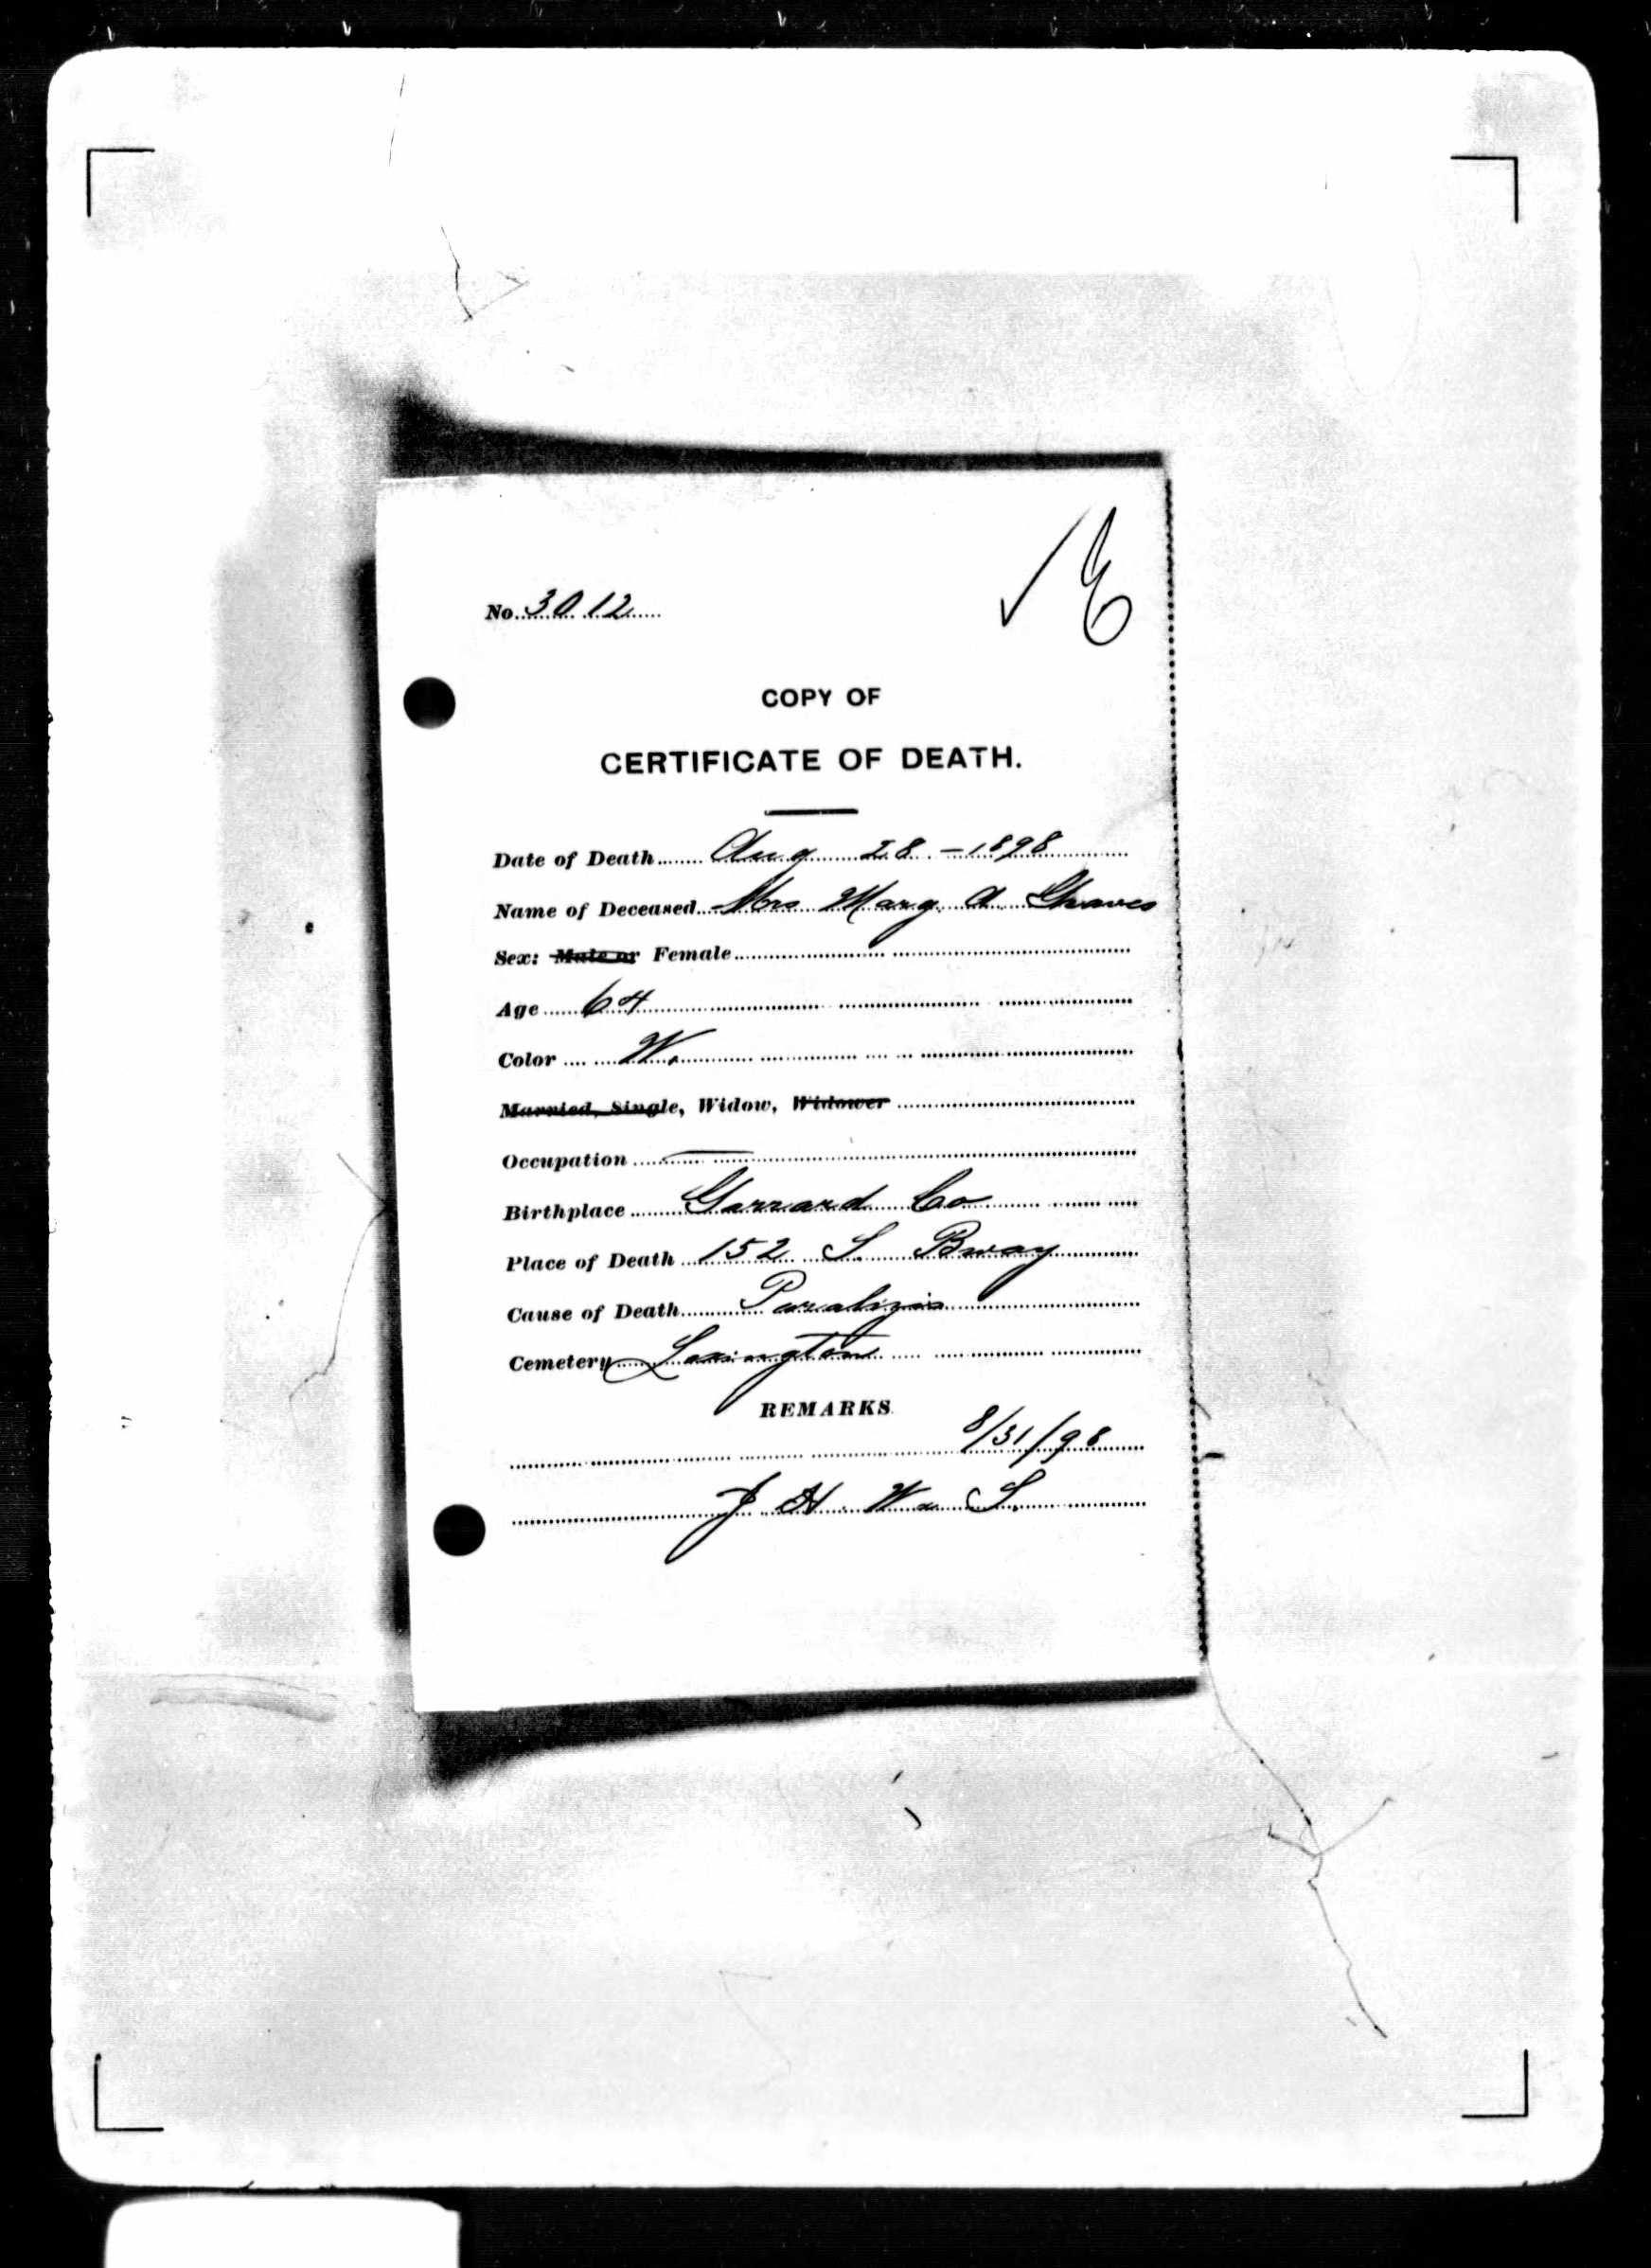 No. 3012
COPY OF
CERTIFICATE OF DEATH.
Date of Death Aug 28 - 1898
Name of Deceased Mrs Mary A Graves
Sex: Male or Female
Age 64
Color W.
Married, Single, Widow, Widower
Occupation —
Birthplace Garrard Co
Place of Death 152 S. Bway
Cause of Death Paralizis
Cemetery Lexington
REMARKS
8/31/98
J H. W & S.